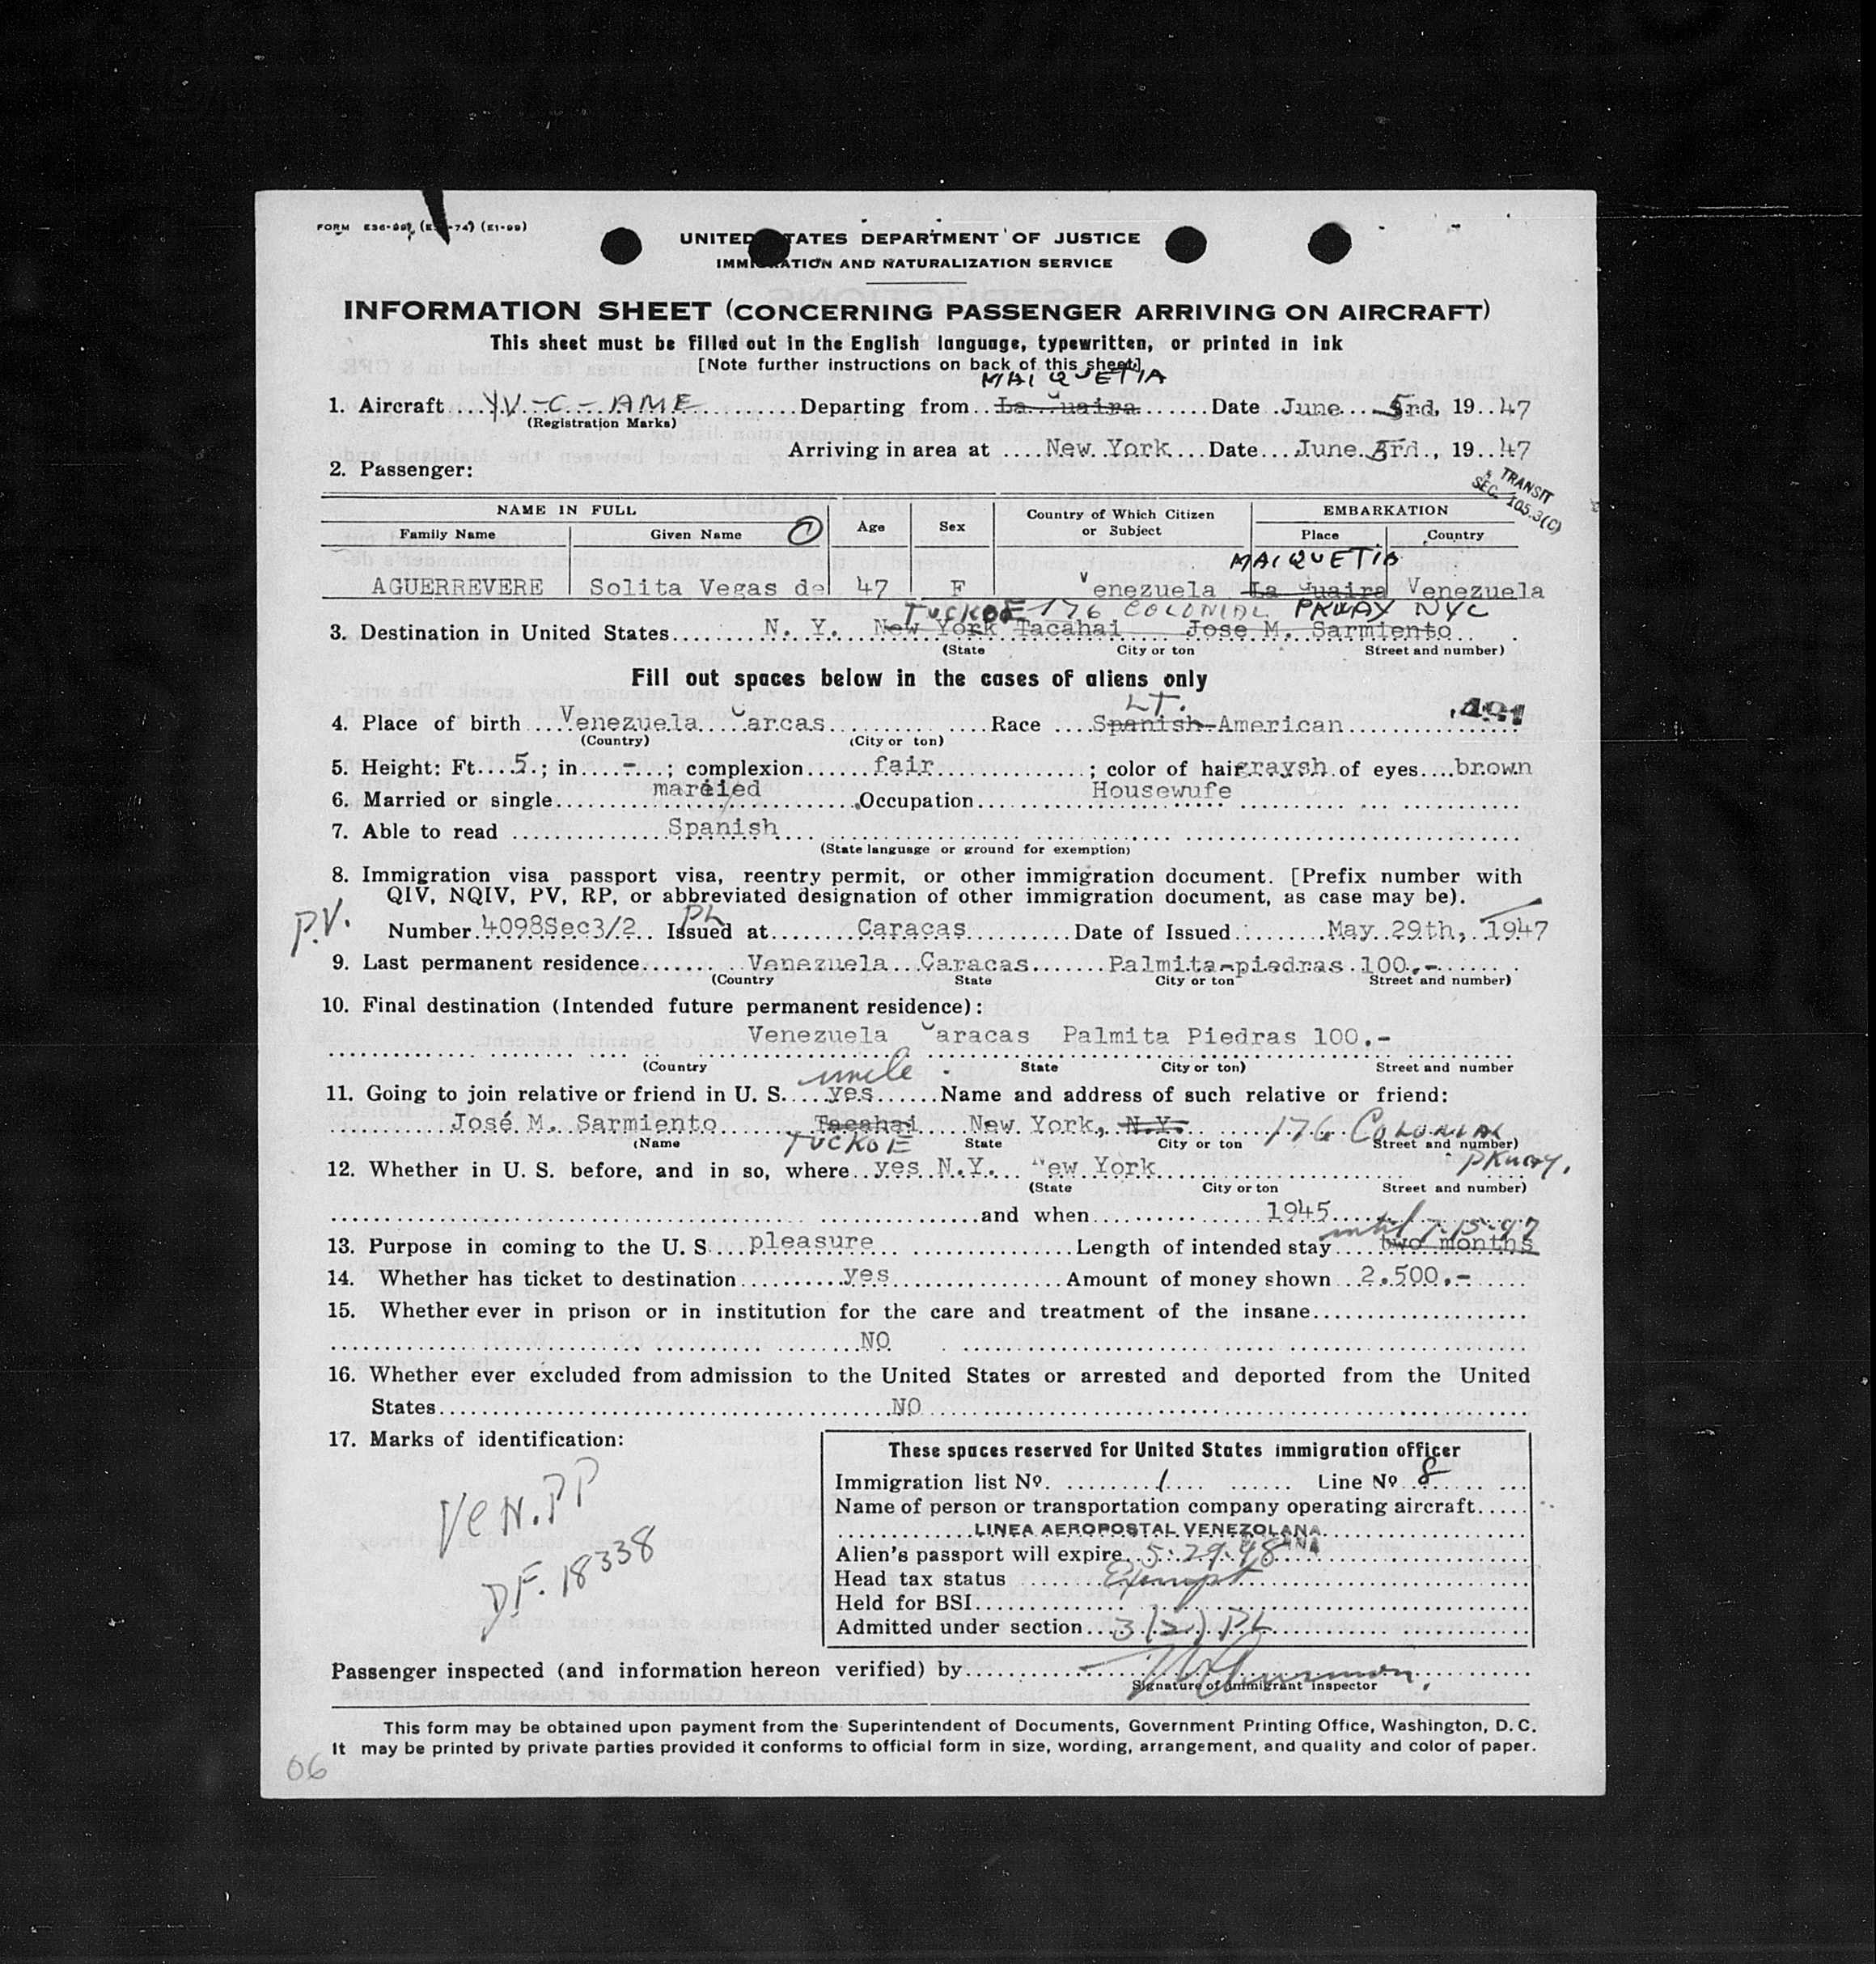 FORM E36-99, (E -74) (E1-99)
UNITED STATES DEPARTMENT OF JUSTICE
IMMIGRATION AND NATURALIZATION SERVICE
INFORMATION SHEET (CONCERNING PASSENGER ARRIVING ON AIRCRAFT)
This sheet must be filled out in the English language, typewritten, or printed in ink
[Note further instructions on back of this sheet]
MAIQUETIA
1. Aircraft YV-C-AME Departing from La Guaira Date June 5rd, 19 47
(Registration Marks)
Arriving in area at New York Date June 5rd., 19 47
2. Passenger:
TRANSIT
SEC. 105.3(C)
NAME IN FULL Age Sex Country of Which Citizen or Subject EMBARKATION
Family Name Given Name Place Country
MAIQUETIA
AGUERREVERE Solita Vegas de 47 F Venezuela La Guaira Venezuela
TUCKOE 176 COLONIAL PKWAY NYC
3. Destination in United States N. Y. New York Tacahai Jose M. Sarmiento
(State City or ton Street and number)
Fill out spaces below in the cases of aliens only
LT. 491
4. Place of birth Venezuela Carcas Race Spanish-American
(Country) (City or ton)
5. Height: Ft. 5 ; in - ; complexion fair ; color of hair graysh of eyes brown
6. Married or single married Occupation Housewufe
7. Able to read Spanish
(State language or ground for exemption)
8. Immigration visa passport visa, reentry permit, or other immigration document. [Prefix number with
QIV, NQIV, PV, RP, or abbreviated designation of other immigration document, as case may be).
P.V. PL
Number 4098Sec3/2 Issued at Caracas Date of Issued May 29th, 1947
9. Last permanent residence Venezuela Caracas Palmita-piedras 100.-
(Country State City or ton Street and number)
10. Final destination (Intended future permanent residence):
Venezuela Caracas Palmita Piedras 100.-
(Country State City or ton) Street and number
uncle
11. Going to join relative or friend in U. S. yes Name and address of such relative or friend:
José M. Sarmiento Tacahai New York, N.Y. 176 COLONIAL
(Name TUCKOE State City or ton Street and number)
PKWAY.
12. Whether in U. S. before, and in so, where yes N.Y. New York
(State City or ton Street and number)
and when 1945
until 7-15-47
13. Purpose in coming to the U. S pleasure Length of intended stay two months
14. Whether has ticket to destination yes Amount of money shown 2.500.-
15. Whether ever in prison or in institution for the care and treatment of the insane
NO
16. Whether ever excluded from admission to the United States or arrested and deported from the United
States NO
17. Marks of identification:
Ven. PP
DF. 18338
These spaces reserved for United States immigration officer
Immigration list No. 1 Line No 8
Name of person or transportation company operating aircraft
LINEA AEROPOSTAL VENEZOLANA
Alien's passport will expire 5-29-48
Head tax status Exempt
Held for BSI
Admitted under section 3(2) PL
Passenger inspected (and information hereon verified) by
Signature of immigrant inspector
This form may be obtained upon payment from the Superintendent of Documents, Government Printing Office, Washington, D. C.
It may be printed by private parties provided it conforms to official form in size, wording, arrangement, and quality and color of paper.
06